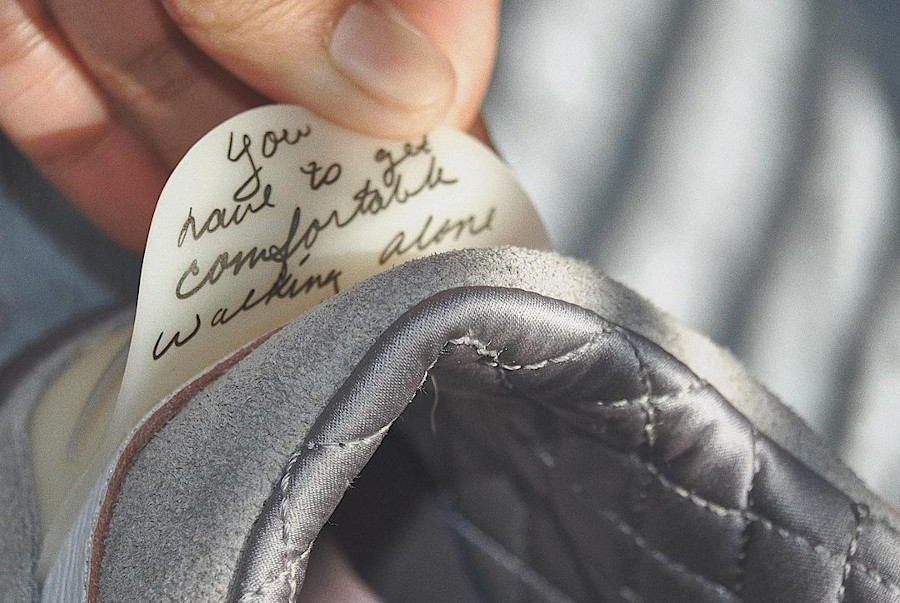 You
have to get
comfortable
walking alone